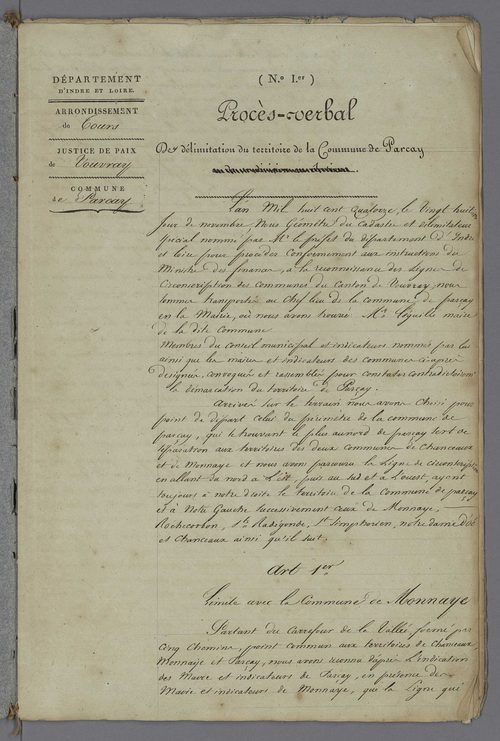 DÉPARTEMENT
D'INDRE ET LOIRE.
ARRONDISSEMENT
de Tours
JUSTICE DE PAIX
de Vouvray
COMMUNE
de Parçay
( N.º I.er )
Procès-verbal
De délimitation du territoire de la Commune de Parçay
L'an Mil huit cent Quatorze, le Vingt huit
jour de novembre, Nous Géomètre du Cadastre et délimitateur
spécial nommé par Mr le préfet du département d'Indre
et Loire pour procéder Conformément aux instructions du
Ministre des finances, à la reconnaissance des lignes de
Circonscription des communes du Canton de Vouvray, nous
sommes transportés au Chef lieu de la commune de parçay
en la Mairie, où nous avons trouvé Mr maire
de la dite Commune
Membres du Conseil municipal et indicateurs nommés par lui
ainsi que les maires et indicateurs des communes ci-après
désignés, convoqués et rassemblés pour constater contradictoirement
la démarcation du territoire de Parçay.
Arrivés sur le terrain nous avons Choisi pour
point de départ celui du périmètre de la commune de
parçay, qui se trouvant le plus au nord de parçay sert de
séparation aux territoires des deux communes de Chanceaux
et de Monnaye et nous avons parcouru la ligne de circonscription
en allant du nord à l'Est, puis au sud et à l'ouest, ayant
toujours à notre droite le territoire de la Commune de parçay
et à Notre Gauche successivement ceux de Monnaye,
Rochecorbon, Ste Radégonde, St Symphorien, notre dame d'Oé
et Chanceaux ainsi qu'il suit.
Art 1er
Limite avec la Commune de Monnaye
Partant du Carrefour de la Vallée formé par
Cinq Chemins, point commun aux territoires de Chanceaux
Monnaye et Parçay, nous avons reconnu d'après l'indication
des Maire et indicateurs de Parçay, en présence des
Maire et indicateurs de Monnaye, que la Ligne qui